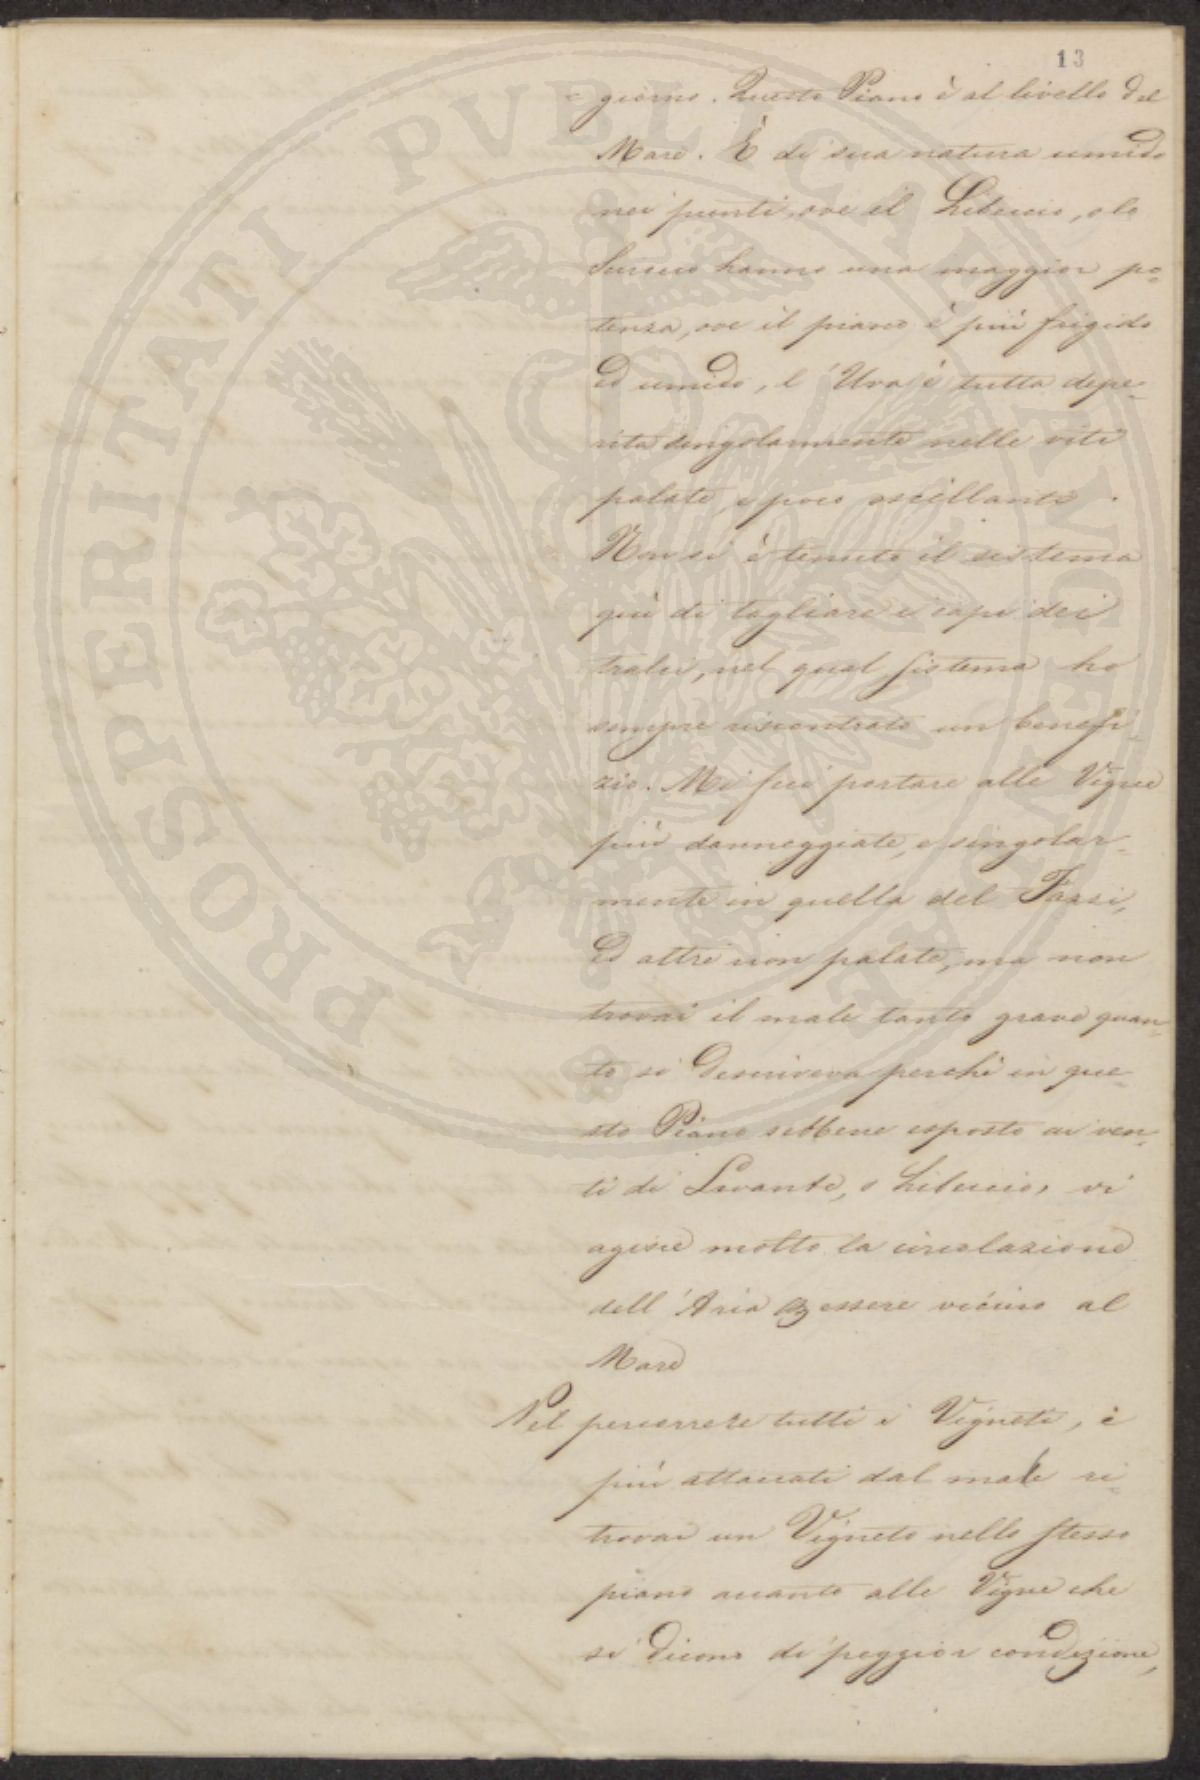 13
= giorno. Questo Piano è al livello del
Mare. È di sua natura umido
nei punti, ove il Libeccio, o lo
Sirocco hanno una maggior po-
tenza, ove il piano è più frigido
ed umido, l'Uva è tutta depe-
rita singolarmente nelle viti
palate, e poco oscillanti.
Non si è tenuto il sistema
qui di tagliare i capi dei
tralci, nel qual sistema ho
sempre riscontrato un benefi-
zio. Mi feci portare alle Vigne
più danneggiate, e singolar-
mente in quella del Fazzi,
ed altre non palate, ma non
trovai il male tanto grave quan-
to si descriveva perchè in que-
sto Piano sebbene esposto ai ven-
ti di Levante, o Libeccio, vi
agisce molto la circolazione
dell'Aria essere vicino al
Mare
Nel percorrere tutti i Vigneti, i
più attaccati dal male ri-
trovai un Vigneto nello stesso
piano accanto alle Vigne che
si dicono di peggior condizione,
PROSPERITATI PVBLICAE AVGENDAE